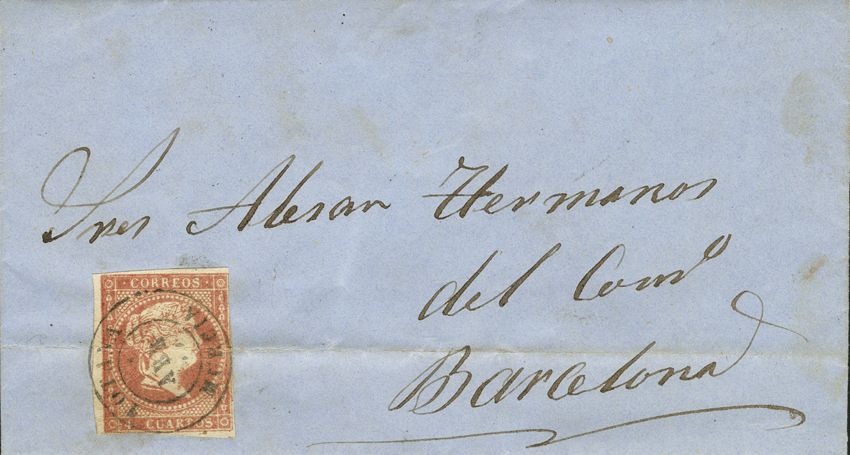 Sres Alesan Hermanos
del Com.º
Barcelona
CORREOS
4 CUARTOS
MURCIA